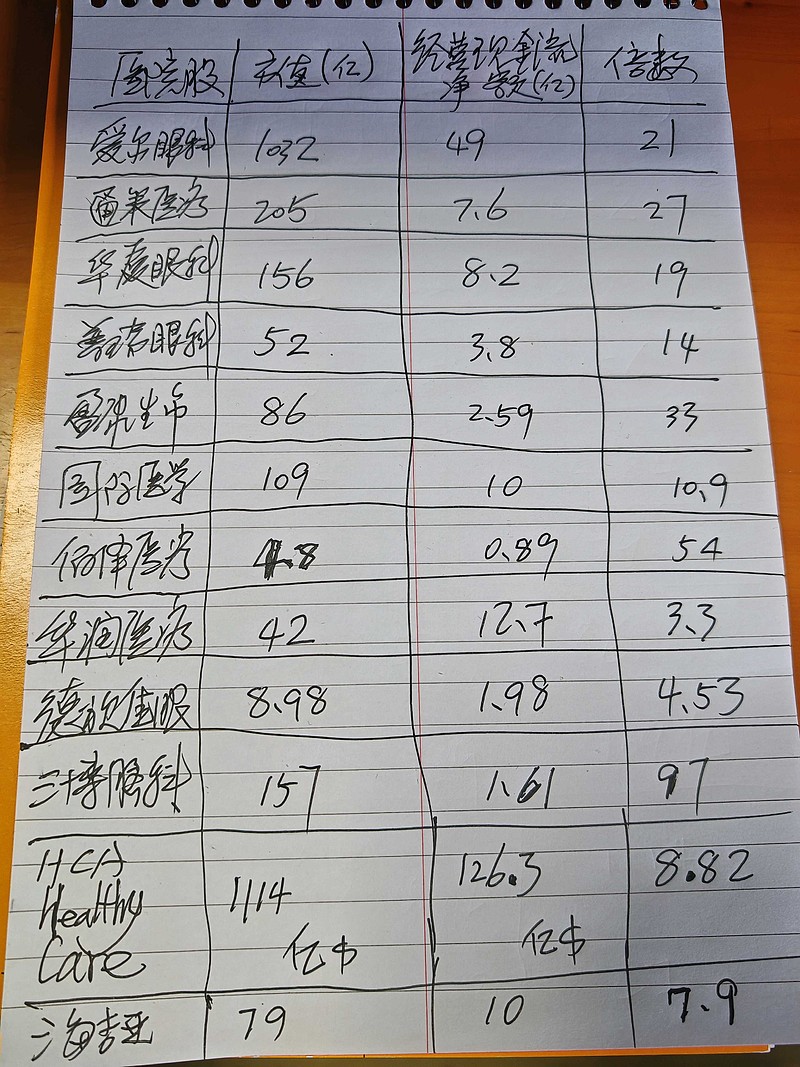 医院股 市值(亿) 经营现金流净额(亿) 倍数
爱尔眼科 1032 49 21
通策医疗 205 7.6 27
华厦眼科 156 8.2 19
普瑞眼科 52 3.8 14
86 2.59 33
国际医学 109 10 10.9
医疗 0.89 54
华润医疗 42 12.7 3.3
德视佳眼 8.98 1.98 4.53
三博脑科 157 1.61 97
HCA
Healthy
Care 1114 亿$ 126.3 亿$ 8.82
海吉亚 79 10 7.9